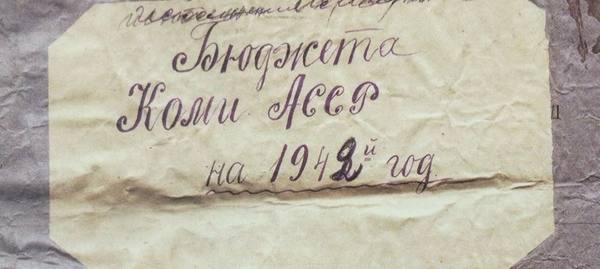 Бюджета
Коми АССР
на 1942й год